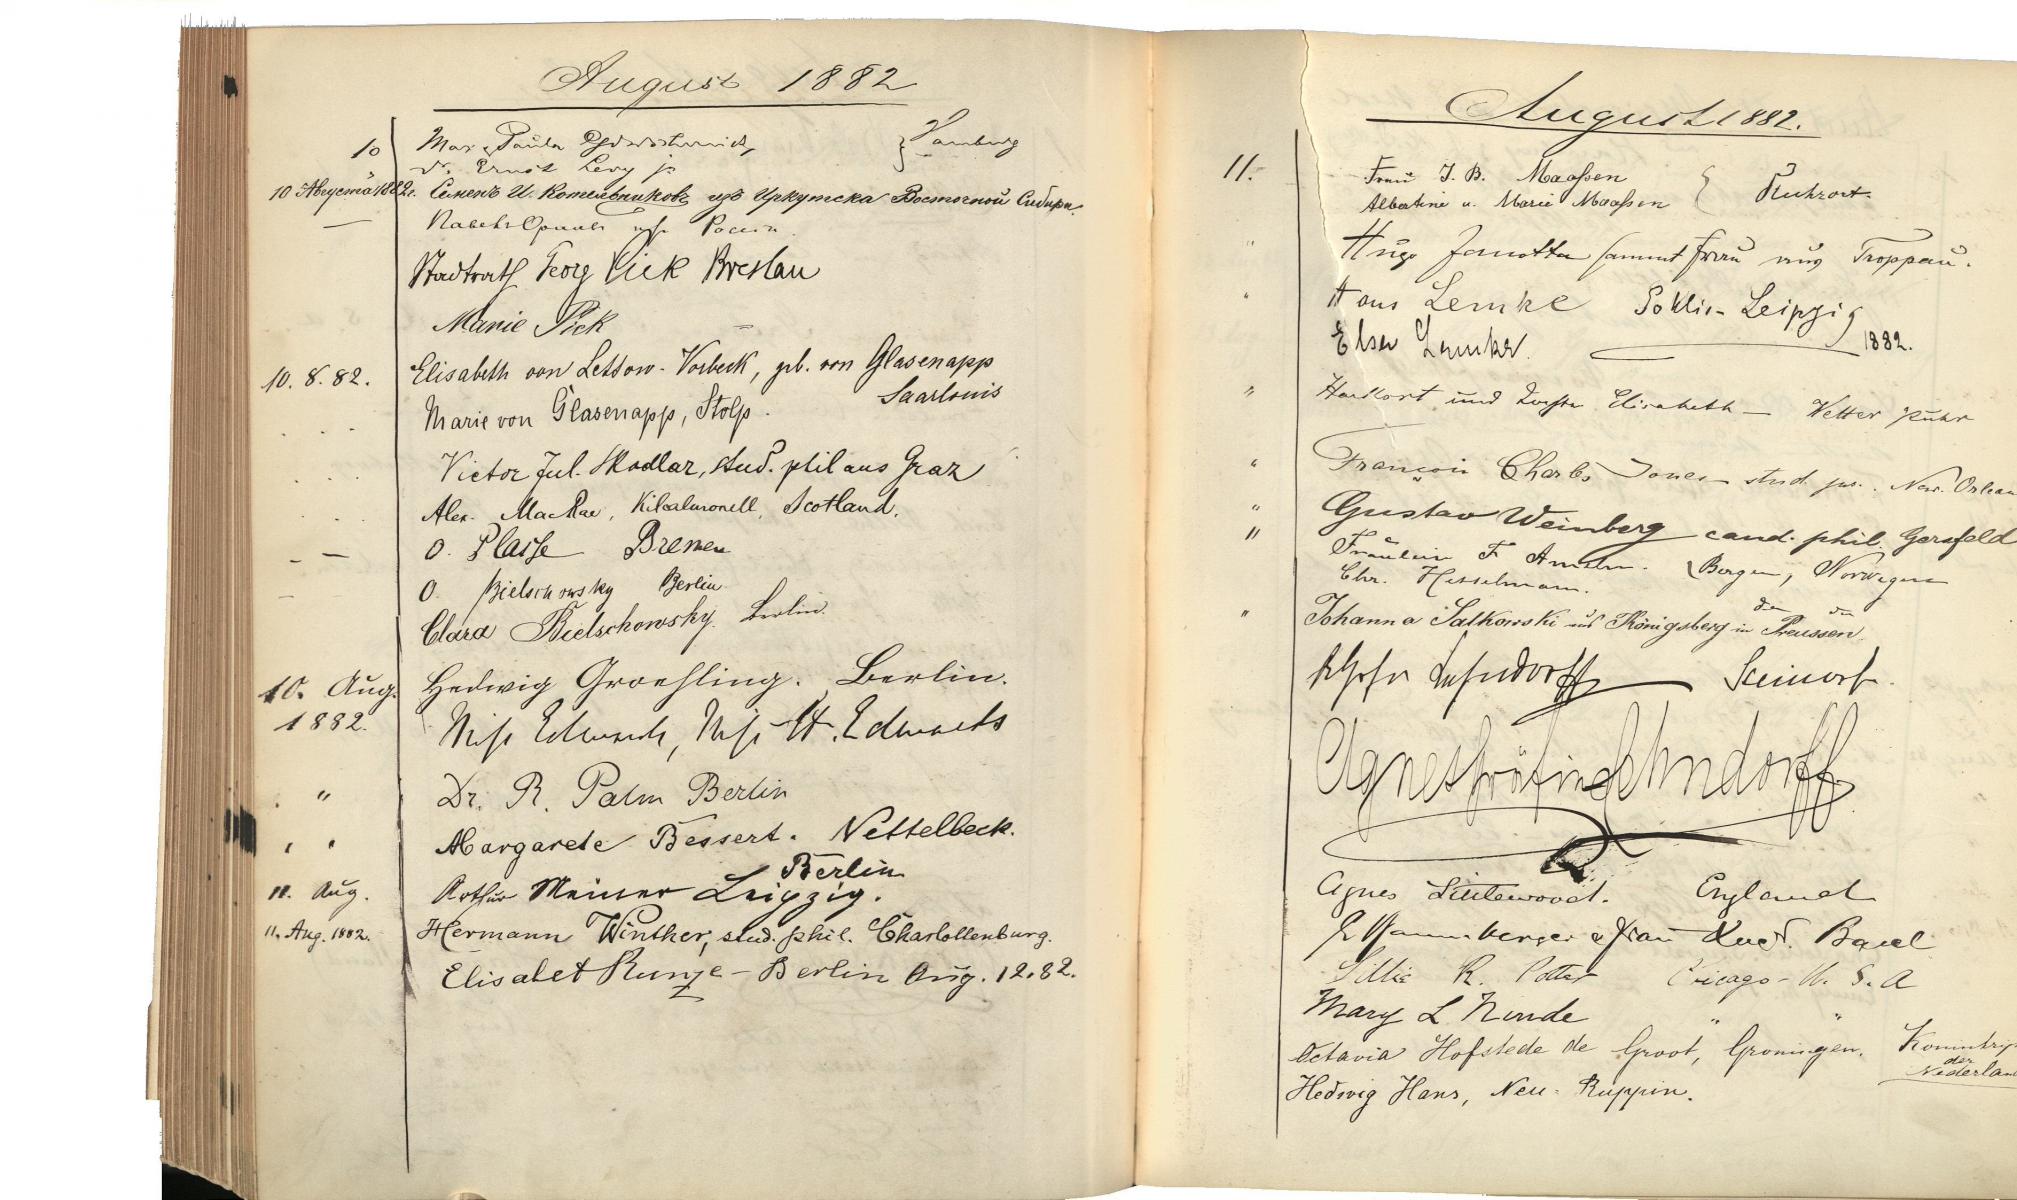 August 1882
10 Max Paula Hamburg
Dr. Ernst Levy jr
10 Августа 1882г. Семенъ И. Котельниковъ изъ Иркутска Восточной Сибири.
Павелъ изъ Россіи
Stadtrath Georg Pick Breslau
Marie Pick
10. 8. 82. Elisabeth von Lettow-Vorbeck, geb. von Glasenapp
Saarlouis
Marie von Glasenapp, Stolp.
Victor Jul. Skodlar, stud. phil aus Graz
Alex. MacRae, Scotland.
O. Plasse Bremen
O. Bielschowsky Berlin
Clara Bielschowsky. Berlin.
10. Aug. Hedwig Groehling. Berlin.
1882. Miss Edwards, Miss H. Edwards
" Dr. R. Palm Berlin
" Margarete Bessert-Nettelbeck.
Berlin
11. Aug. Arthur Meiner Leipzig.
11. Aug. 1882. Hermann Winther, stud. phil. Charlottenburg.
Elisabet Runze - Berlin Aug. 12. 82.
August 1882.
11. Frau J. B. Maaßen
Albertine u. Marie Maaßen Ruhrort.
" Hugo Janotta sammt Frau aus Troppau.
" Hans Lemke Gohlis-Leipzig
Else Lemke. 1882.
" Harkort und Tochter Elisabeth — Wetter Ruhr
" François Charles Jones stud. New Orleans
" Gustav Weinberg cand. phil. Gersfeld
" Fräulein F. Bergen, Norwegen
Chr. Hesselman.
" Johanna Salkowski aus Königsberg in Preussen.
Lehndorff Steinort.
Agnes Gräfin Lehndorff
Agnes Littlewood. England
& Frau Basel
Lillie R. Potter Chicago - U. S. A
Mary L Ninde " "
Octavia Hofstede de Groot, Groningen.
der
Nederlan
Hedwig Hans, Neu-Ruppin.